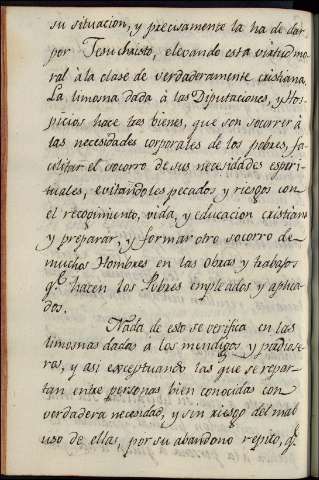 su situacion, y precisamente la ha de dar
por Jesuchristo, elevando esta virtud mo-
ral à la clase de verdaderamente cristiana.
La limosna dada à las Diputaciones, y Hos-
picios hace tres bienes, que son socorrer à
las necesidades corporales de los pobres, fa-
cilitar el socorro de sus necesidades espiri-
tuales, evitandoles pecados y riesgos con
el recogimiento, vida, y educacion cristiana
y preparar, y formar otro socorro de
muchos Hombres en las obras y trabajos
q.e hacen los Pobres empleados y aplica-
dos.
Nada de esto se verifica en las
limosnas dadas a los mendigos y pordiose-
ros, y asi exceptuando las que se repar-
tan entre personas bien conocidas con
verdadera necesidad, y sin riesgo del mal
uso de ellas, por su abandono repito, q.e